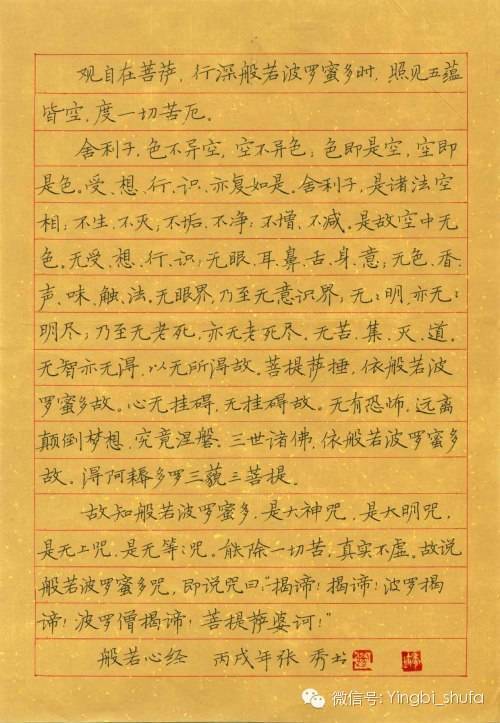 观自在菩萨,行深般若波罗蜜多时,照见五蕴
皆空,度一切苦厄。
舍利子,色不异空,空不异色;色即是空,空即
是色。受、想、行、识,亦复如是。舍利子,是诸法空
相;不生、不灭;不垢、不净;不憎、不减。是故空中无
色。无受、想、行、识;无眼、耳、鼻、舌、身、意;无色、香、
声、味、触、法。无眼界,乃至无意识界;无:明,亦无:
明尽;乃至无老死,亦无老死尽。无苦、集、灭、道。
无智亦无得,以无所得故。菩提萨埵,依般若波
罗蜜多故。心无挂碍,无挂碍故。无有恐怖,远离
颠倒梦想,究竟涅磐。三世诸佛,依般若波罗蜜多
故。得阿耨多罗三藐三菩提。
故知般若波罗蜜多,是大神咒,是大明咒,
是无上咒,是无等:咒。能除一切苦,真实不虚。故说
般若波罗蜜多咒,即说咒曰:“揭谛!揭谛!波罗揭
谛!波罗僧揭谛!菩提萨婆诃!”
般若心经 丙戌年张秀书
微信号: Yingbi_shufa